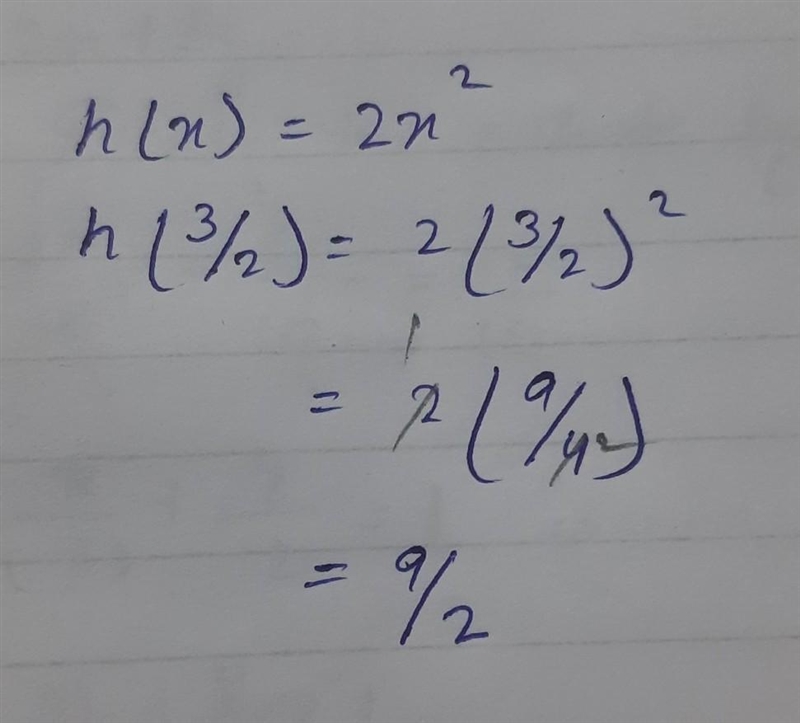 h(x) = 2x²
h(3/2) = 2(3/2)²
1
= 2(9/4 2)
= 9/2